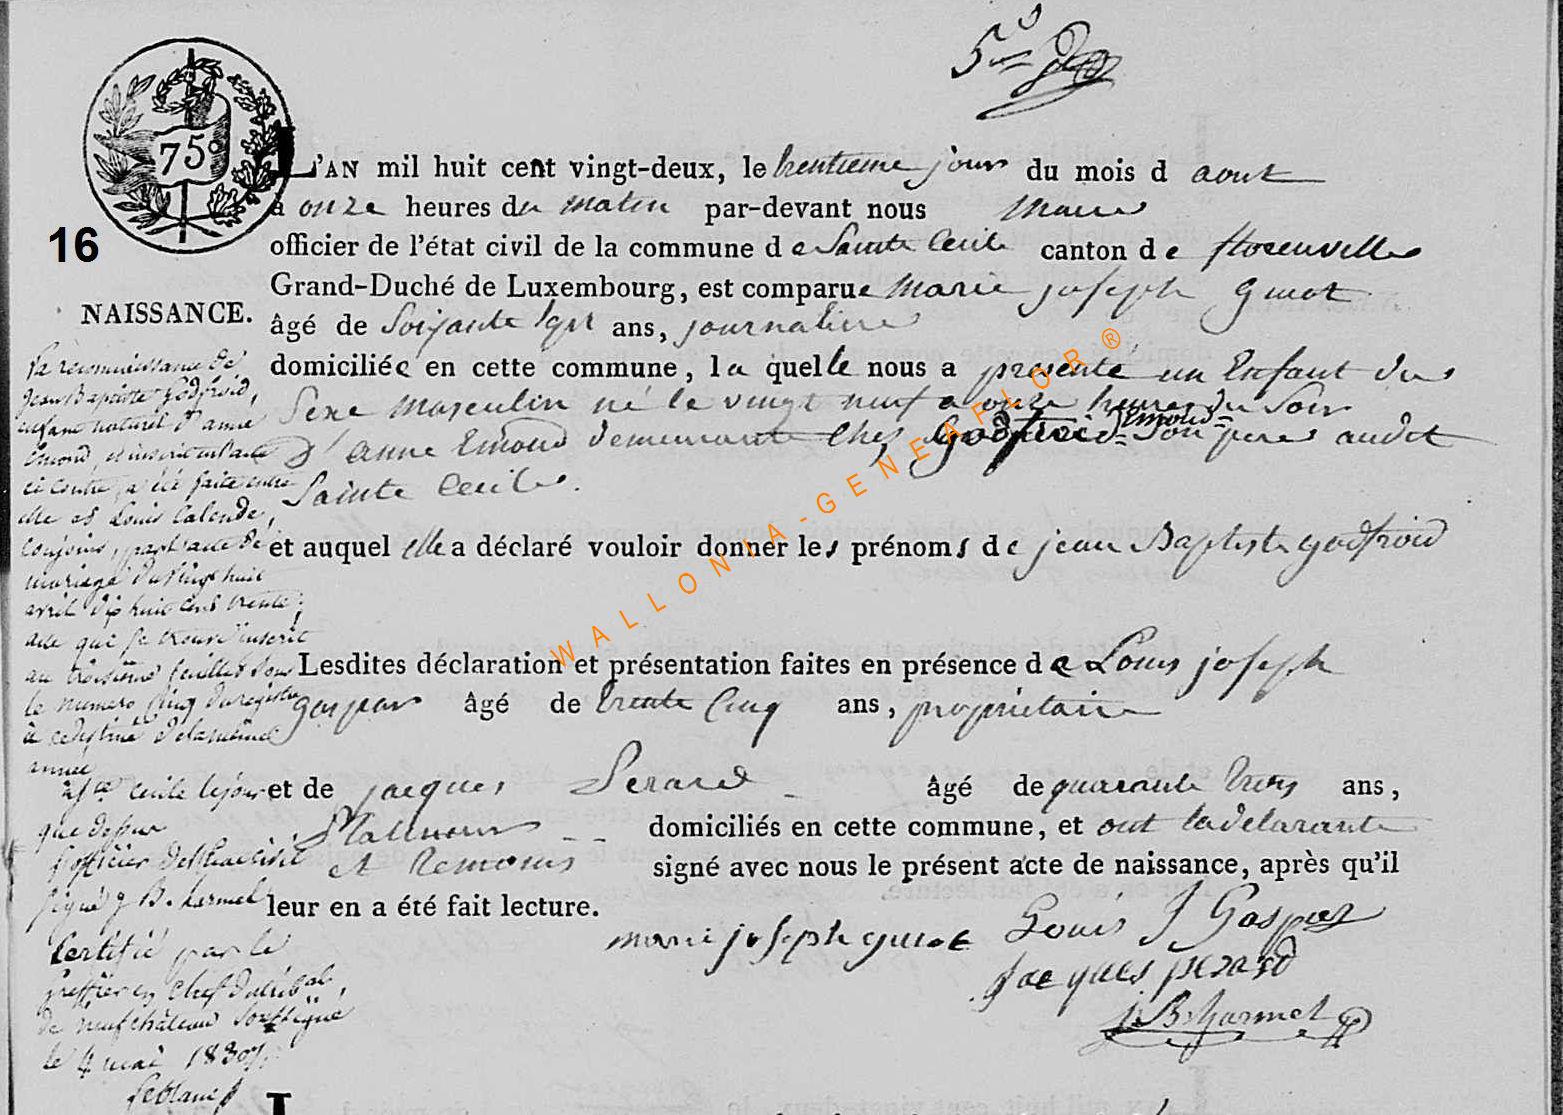 5
75c
16
L'AN mil huit cent vingt-deux, le trentieme jour du mois d aout
à onze heures du matin par-devant nous Maire
officier de l'état civil de la commune de Sainte Cecile canton de florenville
Grand-Duché de Luxembourg, est comparue Marie joseph guiot
NAISSANCE.
âgé de Soixante ans, journaliere
domiciliée en cette commune, la quelle nous a presenté un Enfant du
Sexe Masculin né le vingt neuf a onze heures du Soir
d'anne Emond demeurante chez godfroid Emond Son pere audit
Sainte Cecile.
et auquel elle a déclaré vouloir donner les prénoms de jean Baptiste godfroid
Lesdites déclaration et présentation faites en présence de Louis joseph
gaspar âgé de trente Cinq ans, proprietaire
et de jacques Perard âgé de quarante trois ans,
domiciliés en cette commune, et ont la declarante
et temoins signé avec nous le présent acte de naissance, après qu'il
leur en a été fait lecture.
marie joseph guiot Louis J Gasper
jacques perard
J: B: harmel
La reconnaissance de
Jean Baptiste Godfroid,
enfant naturel d'anne
Emond, et inscrit en l'acte
ci contre, a été faite entre
elle et Louis Lalende,
Conjoins, par l'acte de
mariage du vingt huit
avril dix huit cent trente,
acte que se trouve inscrit
au troisieme feuillet sous
le numero Cinq du registre
à ce destiné de la même
année
à Ste cecile le jour
que dessus
L'officier de l'Etat civil
signé J B. harmel
Certifié par le
greffier en chef du tribal,
de neufchâteau soussigné
le 4 mai 1830
Leblanc
WALLONIA-GENEAFLOR ®
L